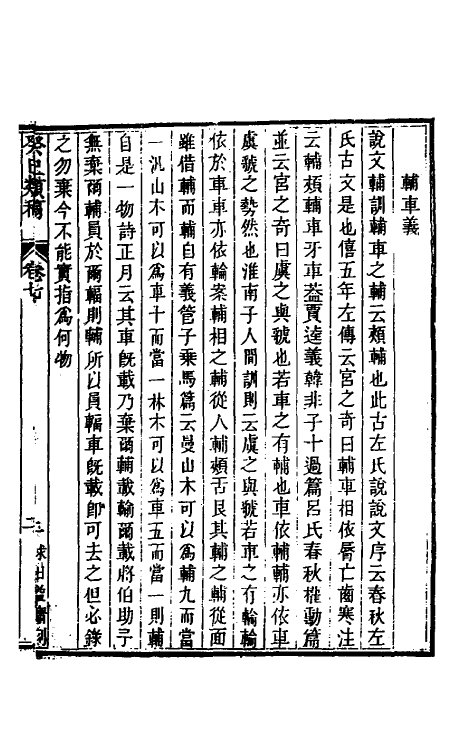 輔車義
說文輔訓輔車之輔云頰輔也此古左氏說說文序云春秋左
氏古文是也僖五年左傳云宮之奇曰輔車相依脣亡齒寒注
云輔頰輔車牙車葢賈逵義韓非子十過篇呂氏春秋權動篇
並云宮之奇曰虞之與虢也若車之有輔也車依輔輔亦依車
虞虢之勢然也淮南子人間訓則云虞之與虢若車之有輪輪
依於車車亦依輪案輔相之輔從人輔頰舌艮其輔之輔從面
雖借輔而輔自有義管子乗馬篇云曼山木可以爲輔九而當
一汎山木可以爲車十而當一林木可以爲車五而當一則輔
自是一物詩正月云其車旣載乃棄爾輔載輸爾載將伯助予
無棄爾輔員於爾輻則輔所以員輻車旣載卽可去之但必錄
之勿棄今不能實指爲何物
癸巳類稿
卷七
二
求日益齋刻